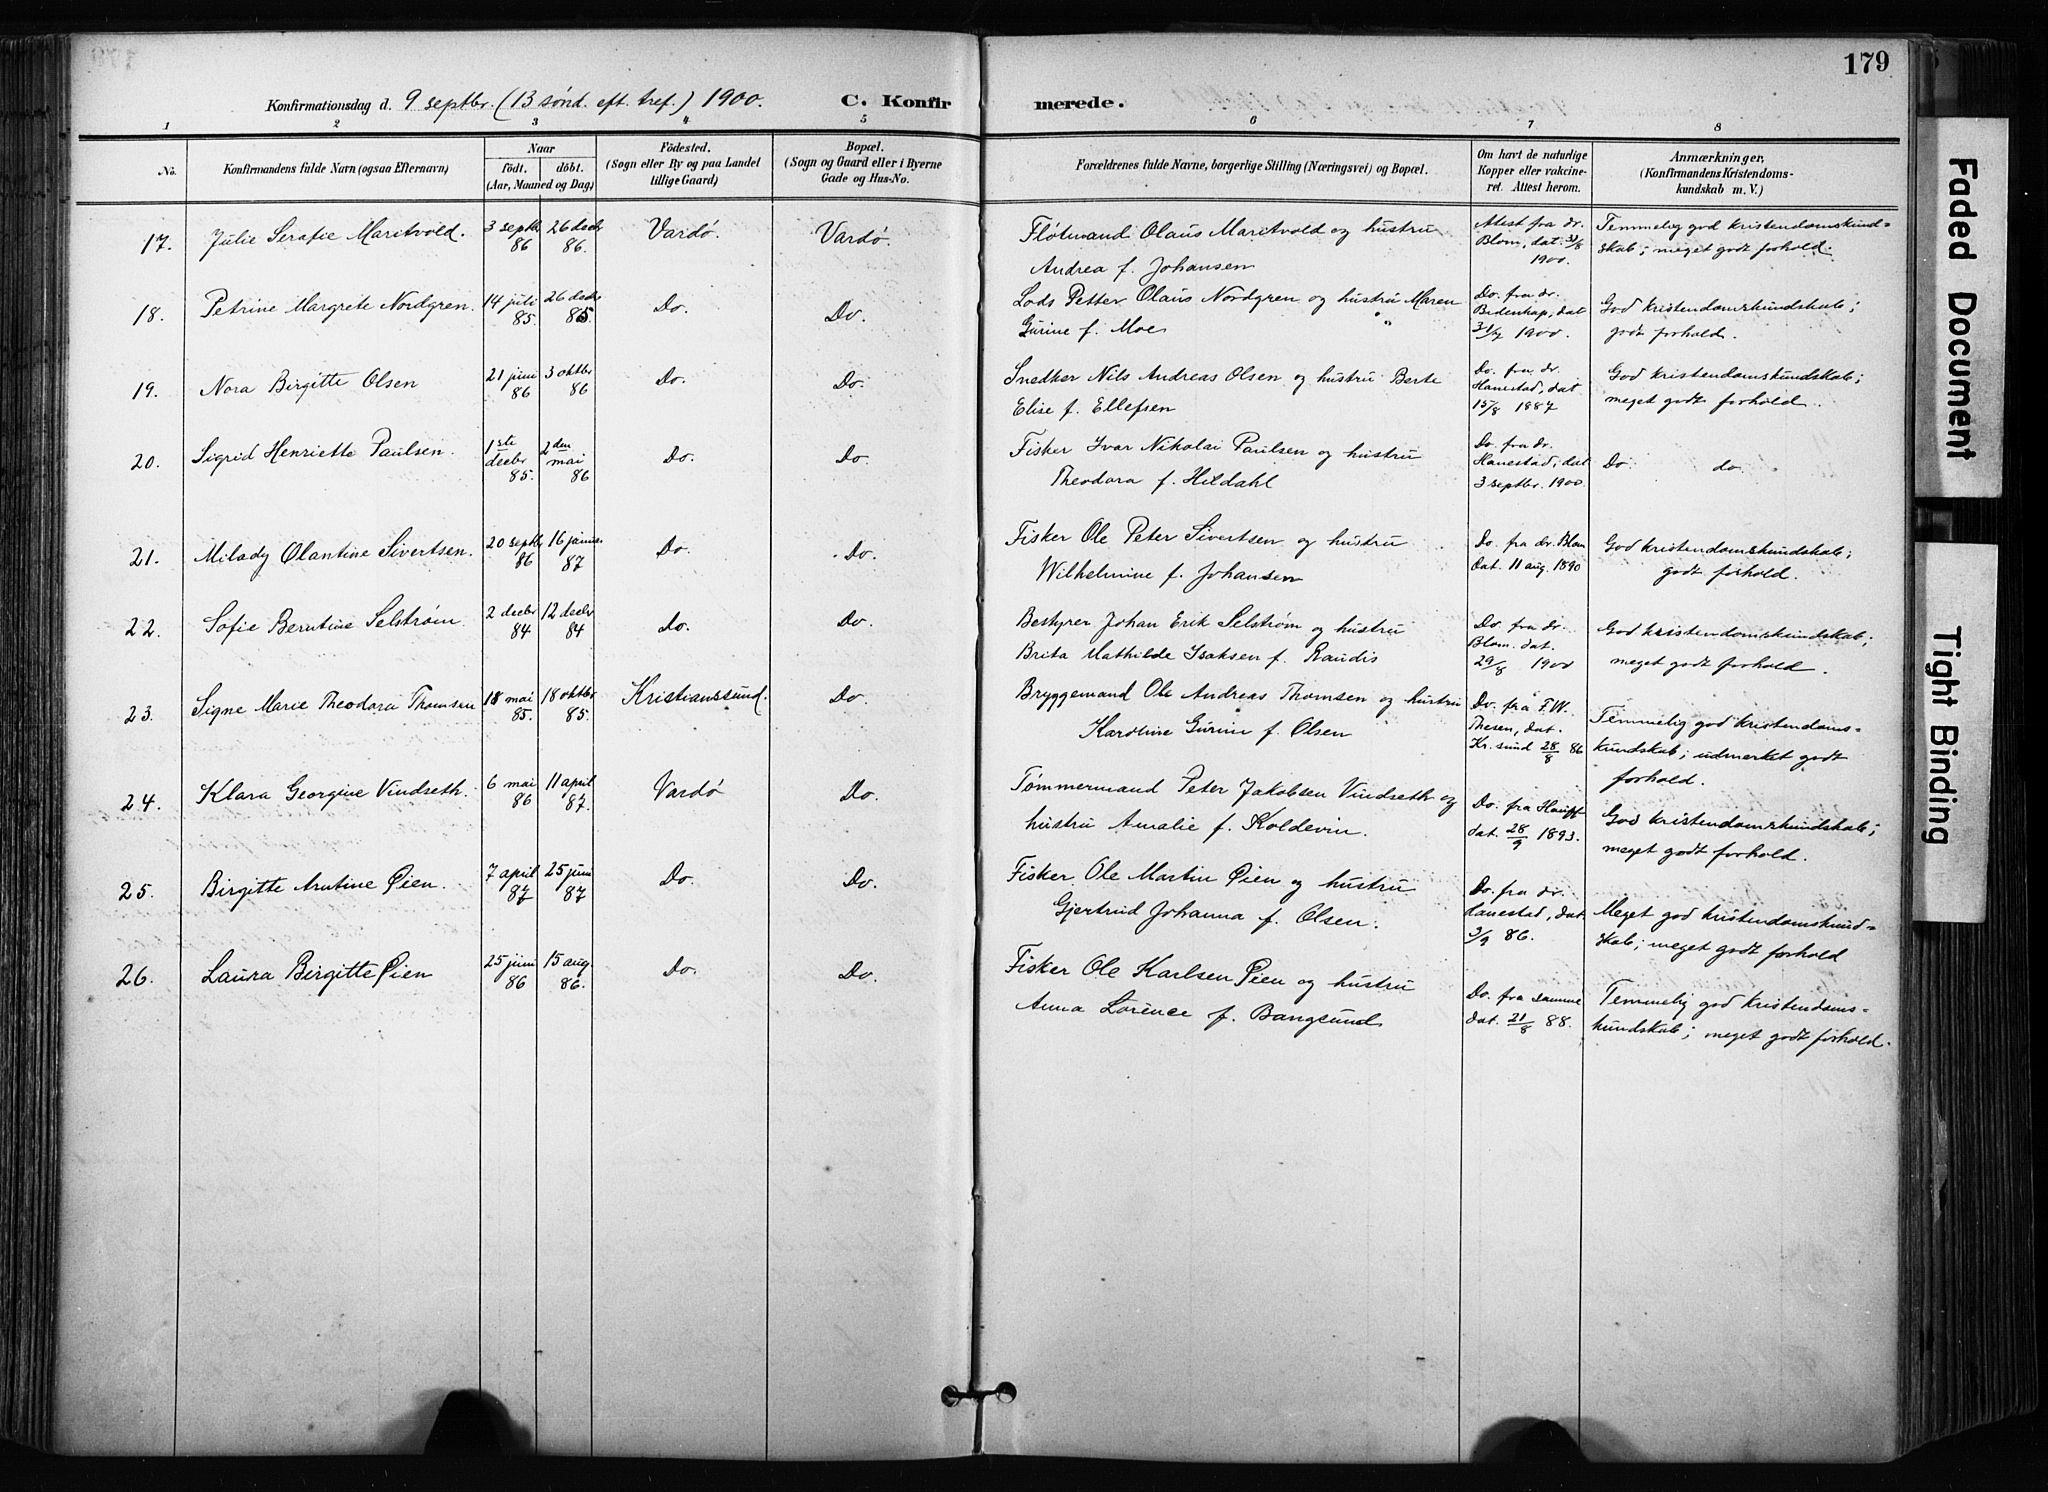 179
Konfirmationsdag d. 9 septbr. (13 sønd. eft. tref.) 1900. C. Konfirmerede.
1 2 3 4 5 6 7 8
No.
Konfirmandens fulde Navn (ogsaa Efternavn)
Naar
født. døbt.
(Aar, Maaned og Dag)
Fødested.
(Sogn eller By og paa Landet
tillige Gaard)
Bopæl.
(Sogn og Gaard eller i Byerne
Gade og Hus-No.
Forældrenes fulde Navne, borgerlige Stilling (Næringsvei) og Bopæl.
Om havt de naturlige
Kopper eller vakcine-
ret. Attest herom.
Anmærkninger,
(Konfirmandens Kristendoms-
kundskab m. V.)
17. Julie Serafie Maritvold. 3 septb. 86 26 decbr 86. Vardø. Vardø.
Fløtmand Olaus Maritvold og hustru
Andrea f. Johansen
Attest fra dr.
Blom, dat. 31/8
1900.
Temmelig god kristendomskund-
skab; meget godt forhold.
18. Petrine Margrete Nordgren. 14 juli 85. 26 decbr 85. Do. Do.
Lods Petter Olaus Nordgren og hustru Maren
Gurine f. Moe
Do. fra dr.
Bidenkap, dat
31/7 1900.
God kristendomskundskab;
godt forhold.
19. Nora Birgitte Olsen 21 juni 86 3 oktbr 86 Do. Do.
Snedker Nils Andreas Olsen og hustru Berte
Elise f. Ellefsen
Do. fra dr.
Hanestad, dat
15/8 1887
God kristendomskundskab;
meget godt forhold.
20. Sigrid Henriette Paulsen. 1ste decbr 85. 2den mai 86 Do. Do.
Fisker Ivar Nikolai Paulsen og hustru
Theodora f. Hildahl
Do. fra dr.
Hanestad, dat
3 septbr. 1900.
Do. do.
21. Milady Olantine Sivertsen. 20 septbr 86 16 januar 87 Do. Do.
Fisker Ole Peter Sivertsen og hustru
Wilhelmine f. Johansen
Do. fra dr. Blom
dat. 11 aug. 1890
God kristendomskundskab;
godt forhold.
22. Sofie Berntine Selstrøm. 2 decbr 84 12 decbr 84 Do. Do.
Bestyrer Johan Erik Selstrøm og hustru
Brita Mathilde Isaksen f. Raudis
Do. fra dr.
Blom. dat.
29/8 1900
God kristendomskundskab;
meget godt forhold.
23. Signe Marie Theodora Thomsen 18 mai 85. 18 oktbr 85. Kristianssund. Do.
Bryggemand Ole Andreas Thomsen og hustru
Karoline Gurine f. Olsen
Do. fra F.W.
Thesen, dat.
Kr. sund 28/8 86
Temmelig god kristendoms-
kundskab; udmerket godt
forhold.
24. Klara Georgine Vindseth. 6 mai 86 11 april 87. Vardø Do.
Tømmermand Peter Jakobsen Vindseth og
hustru Amalie f. Koldevin.
Do. fra
dat. 28/9 1893.
God kristendomskundskab;
meget godt forhold.
25. Birgitte Arntine Øien. 7 april 87 25 juni 87 Do. Do.
Fisker Ole Martin Øien og hustru
Gjertrud Johanna f. Olsen.
Do. fra dr.
Hanestad, dat
3/9 86.
Meget god kristendomskund-
skab; meget godt forhold
26. Laura Birgitte Øien 25 juni 86 15 aug. 86. Do. Do.
Fisker Ole Karlsen Øien og hustru
Anna Lorence f. Bangsund
Do. fra samme
dat. 21/8 88.
Temmelig god kristendoms-
kundskab; meget godt forhold.
Faded Document
Tight Binding